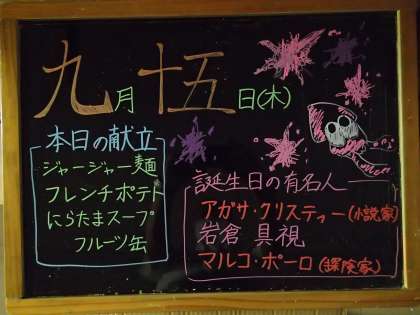 九月十五日(木)
本日の献立
ジャージャー麺
フレンチポテト
にらたまスープ
フルーツ缶
誕生日の有名人
アガサ・クリスティー(小説家)
岩倉 具視
マルコ・ポーロ(探険家)